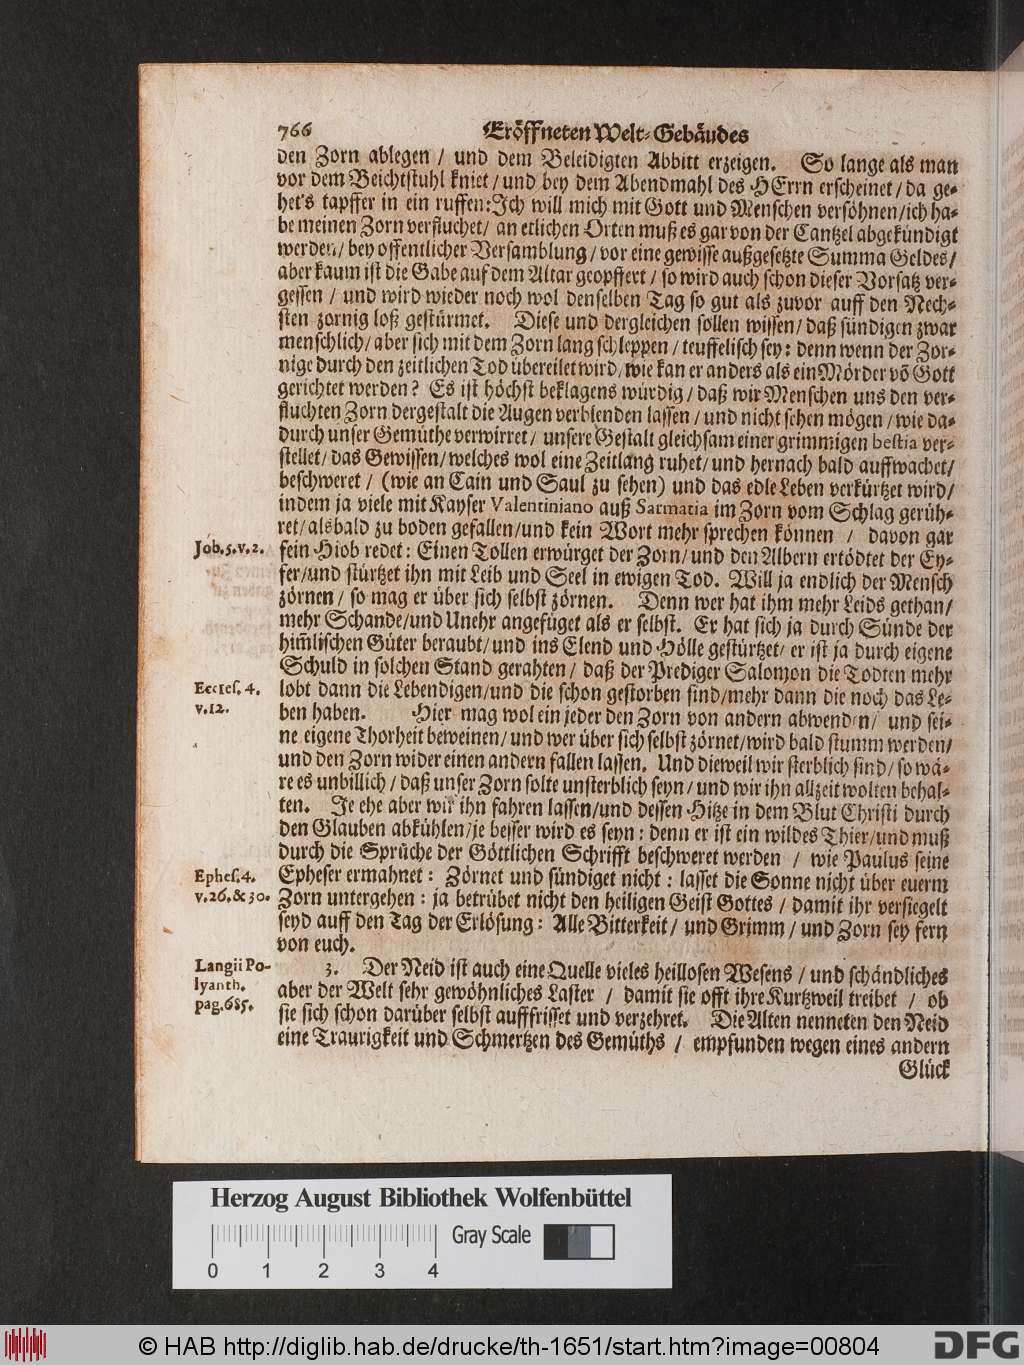 766 Eröffneten Welt-Gebäudes
den Zorn ablegen / und dem Beleidigten Abbitt erzeigen. So lange als man
vor dem Beichtstuhl kniet / und bey dem Abendmahl des HErrn erscheinet / da ge-
het's tapffer in ein ruffen: Ich will mich mit Gott und Menschen versöhnen / ich ha-
be meinen Zorn verfluchet / an etlichen Orten muß es gar von der Cantzel abgekündigt
werden / bey offentlicher Versamblung / vor eine gewisse außgesetzte Summa Geldes /
aber kaum ist die Gabe auf dem Altar geopffert / so wird auch schon dieser Vorsatz ver-
gessen / und wird wieder noch wol denselben Tag so gut als zuvor auff den Nech-
sten zornig loß gestürmet. Diese und dergleichen sollen wissen / daß sündigen zwar
menschlich / aber sich mit dem Zorn lang schleppen / teuffelisch sey: denn wenn der Zor-
nige durch den zeitlichen Tod übereilet wird / wie kan er anders als ein Mörder võ Gott
gerichtet werden? Es ist höchst beklagens würdig / daß wir Menschen uns den ver-
fluchten Zorn dergestalt die Augen verblenden lassen / und nicht sehen mögen / wie da-
durch unser Gemüthe verwirret / unsere Gestalt gleichsam einer grimmigen bestia ver-
stellet / das Gewissen / welches wol eine Zeitlang ruhet / und hernach bald auffwachet /
beschweret / (wie an Cain und Saul zu sehen) und das edle Leben verkürtzet wird /
indem ja viele mit Kayser Valentiniano auß Sarmatia im Zorn vom Schlag gerüh-
ret / alsbald zu boden gefallen / und kein Wort mehr sprechen können / davon gar
Job. 5. v. 2. fein Hiob redet: Einen Tollen erwürget der Zorn / und den Albern ertödtet der Ey-
fer / und stürtzet ihn mit Leib und Seel in ewigen Tod. Will ja endlich der Mensch
zörnen / so mag er über sich selbst zörnen. Denn wer hat ihm mehr Leids gethan /
mehr Schande / und Unehr angefüget als er selbst. Er hat sich ja durch Sünde der
him̃lischen Güter beraubt / und ins Elend und Hölle gestürtzet / er ist ja durch eigene
Schuld in solchen Stand gerahten / daß der Prediger Salomon die Todten mehr
Eccles. 4. lobt dann die Lebendigen / und die schon gestorben sind / mehr dann die noch das Le-
v. 12. ben haben. Hier mag wol ein jeder den Zorn von andern abwenden / und sei-
ne eigene Thorheit beweinen / und wer über sich selbst zörnet / wird bald stumm werden /
und den Zorn wider einen andern fallen lassen. Und dieweil wir sterblich sind / so wä-
re es unbillich / daß unser Zorn solte unsterblich seyn / und wir ihn allzeit wolten behal-
ten. Je ehe aber wir ihn fahren lassen / und dessen Hitze in dem Blut Christi durch
den Glauben abkühlen / je besser wird es seyn: denn er ist ein wildes Thier / und muß
durch die Sprüche der Göttlichen Schrifft beschweret werden / wie Paulus seine
Ephes. 4. Epheser ermahnet: Zörnet und sündiget nicht: lasset die Sonne nicht über euerm
v. 26. & 30. Zorn untergehen: ja betrübet nicht den heiligen Geist Gottes / damit ihr versiegelt
seyd auff den Tag der Erlösung: Alle Bitterkeit / und Grimm / und Zorn sey fern
von euch.
Langii Po- 3. Der Neid ist auch eine Quelle vieles heillosen Wesens / und schändliches
lyanth. aber der Welt sehr gewöhnliches Laster / damit sie offt ihre Kurtzweil treibet / ob
pag. 685. sie sich schon darüber selbst aufffrisset und verzehret. Die Alten nenneten den Neid
eine Traurigkeit und Schmertzen des Gemüths / empfunden wegen eines andern
Glück
Herzog August Bibliothek Wolfenbüttel
Gray Scale
0 1 2 3 4
© HAB http://diglib.hab.de/drucke/th-1651/start.htm?image=00804
DFG